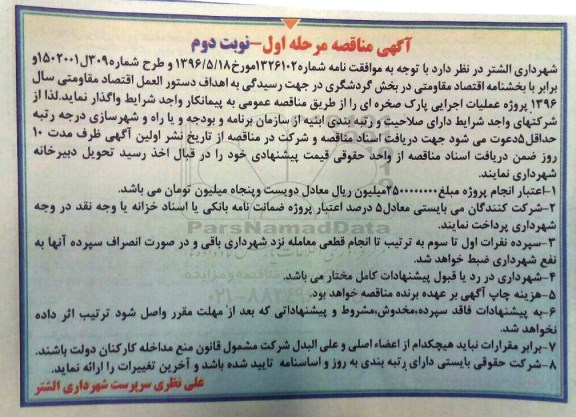 آگهی مناقصه مرحله اول-نوبت دوم
شهرداری الشتر در نظر دارد با توجه به موافقت نامه شماره۱۳۲۶۱۰۲مورخ۱۳۹۶/۵/۱۸ و طرح شماره۳۰۹ل۱۵۰۲۰۰۱و
برابر با بخشنامه اقتصاد مقاومتی در بخش گردشگری در جهت رسیدگی به اهداف دستور العمل اقتصاد مقاومتی سال
۱۳۹۶ پروژه عملیات اجرایی پارک صخره ای را از طریق مناقصه عمومی به پیمانکار واجد شرایط واگذار نماید.لذا از
شرکتهای واجد شرایط دارای صلاحیت و رتبه بندی ابنیه از سازمان برنامه و بودجه و یا راه و شهرسازی درجه رتبه
حداقل۵دعوت می شود جهت دریافت اسناد مناقصه و شرکت در مناقصه از تاریخ نشر اولین آگهی ظرف مدت ۱۰
روز ضمن دریافت اسناد مناقصه از واحد حقوقی قیمت پیشنهادی خود را در قبال اخذ رسید تحویل دبیرخانه
شهرداری نمایند.
۱-اعتبار انجام پروژه مبلغ۲۵۰۰۰۰۰۰۰۰میلیون ریال معادل دویست وپنجاه میلیون تومان می باشد.
۲-شرکت کنندگان می بایستی معادل۵ درصد اعتبار پروژه ضمانت نامه بانکی یا اسناد خزانه یا وجه نقد در وجه
شهرداری پرداخت نمایند.
ParsNamadData
۳-سپرده نفرات اول تا سوم به ترتیب تا انجام قطعی معامله نزد شهرداری باقی و در صورت انصراف سپرده آنها به
نفع شهرداری ضبط خواهد شد.
۴-شهرداری در رد یا قبول پیشنهادات کامل مختار می باشد.
۵-هزینه چاپ آگهی بر عهده برنده مناقصه خواهد بود.
۶-به پیشنهادات فاقد سپرده،مخدوش،مشروط و پیشنهاداتی که بعد از مهلت مقرر واصل شود ترتیب اثر داده
نخواهد شد.
۷-برابر مقرارات نباید هیچکدام از اعضاء اصلی و علی البدل شرکت مشمول قانون منع مداخله کارکنان دولت باشند.
۸-شرکت حقوقی بایستی دارای رتبه بندی به روز و اساسنامه تایید شده باشد و آخرین تغییرات را ارائه نماید.
علی نظری سرپرست شهرداری الشتر